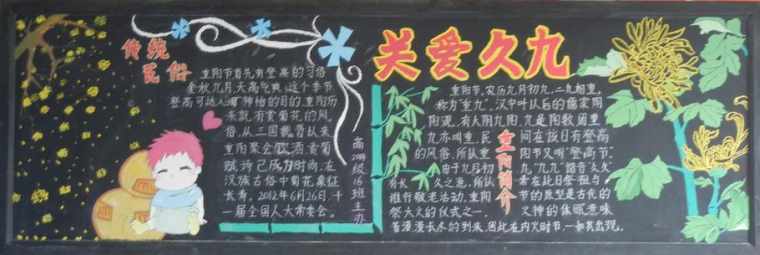 传统
民俗
重阳节首先有登高的习俗
金秋九月,天高气爽,这个季节
登高可达心旷神怡的目的,重阳历
来就有赏菊花的风
俗,从三国魏晋以来
重阳聚会饮酒赏菊
赋诗己成为时尚,在
汉族古俗中菊花象征
长寿。2012年6月26日,十
一届全国人大常委会。
班主办
关爱久九
重阳简介
重阳节,农历九月初九,二九相重,
称为"重九",汉中叶以后的儒家阴
阳观,有六阴九阳,九是阳数,固重
九亦叫重
民间在该日有登高
的风俗,所以重阳节又叫"登高节",
由于九月初九,"九九"谐音"久久"
有长久之意,所以常在此日祭祖与
推行敬老活动,重阳节的原型是古代的
祭大火的仪式之一。